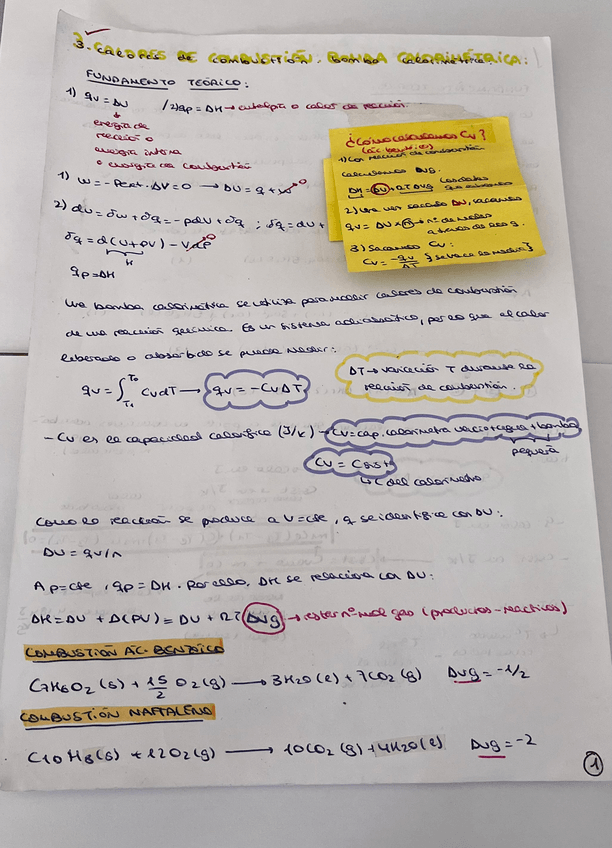 3. CALORES DE COMBUSTIÓN. BOMBA CALORIMÉTRICA:
FUNDAMENTO TEÓRICO:
1) qv = ΔU /2) qp = ΔH → entalpía o calor de reacción.
↓
energía de
reacción o
energía interna
o energía de combustión
1) W = -Pext · ΔV = 0 → ΔU = q + W→0
2) dU = δW + δq = -pdV + δq ; δq = dU +
δq = d(U + PV) - Vdp→0
H
qp = ΔH
¿Cómo calculamos Cv?
(ác. benzoico)
1) Con reacción de combustión
calculamos Δνg.
ΔH = ΔU + RTΔνg
2) Una vez sacado ΔU, sacamos
qv = ΔU × n → nº de moles
a través de los g.
3) Sacamos Cv:
Cv = -qv/ΔT
Una bomba calorimétrica se utiliza para medir calores de combustión
de una reacción química. Es un sistema adiabático, por lo que el calor
liberado o absorbido se puede medir:
qv = ∫T1T0 CvdT → qv = -CvΔT
ΔT → variación T durante la
reacción de combustión.
- Cv es la capacidad calorífica (J/K) → Cv = cap. calorímetro vacío + agua + bomba
pequeña
Cv = Cost
↳ C del calorímetro
Como la reacción se produce a V = cte, q se identifica con ΔU:
ΔU = qv/n
A p = cte, qp = ΔH. Por ello, ΔH se relaciona con ΔU:
ΔH = ΔU + Δ(PV) = ΔU + RT Δνg → nº mol gas (productos - reactivos)
COMBUSTIÓN ÁC. BENZOICO
C7H6O2 (s) + 15/2 O2 (g) → 3H2O (l) + 7CO2 (g) Δνg = -1/2
COMBUSTIÓN NAFTALENO
C10H8 (s) + 12O2 (g) → 10CO2 (g) + 4H2O (l) Δνg = -2
1